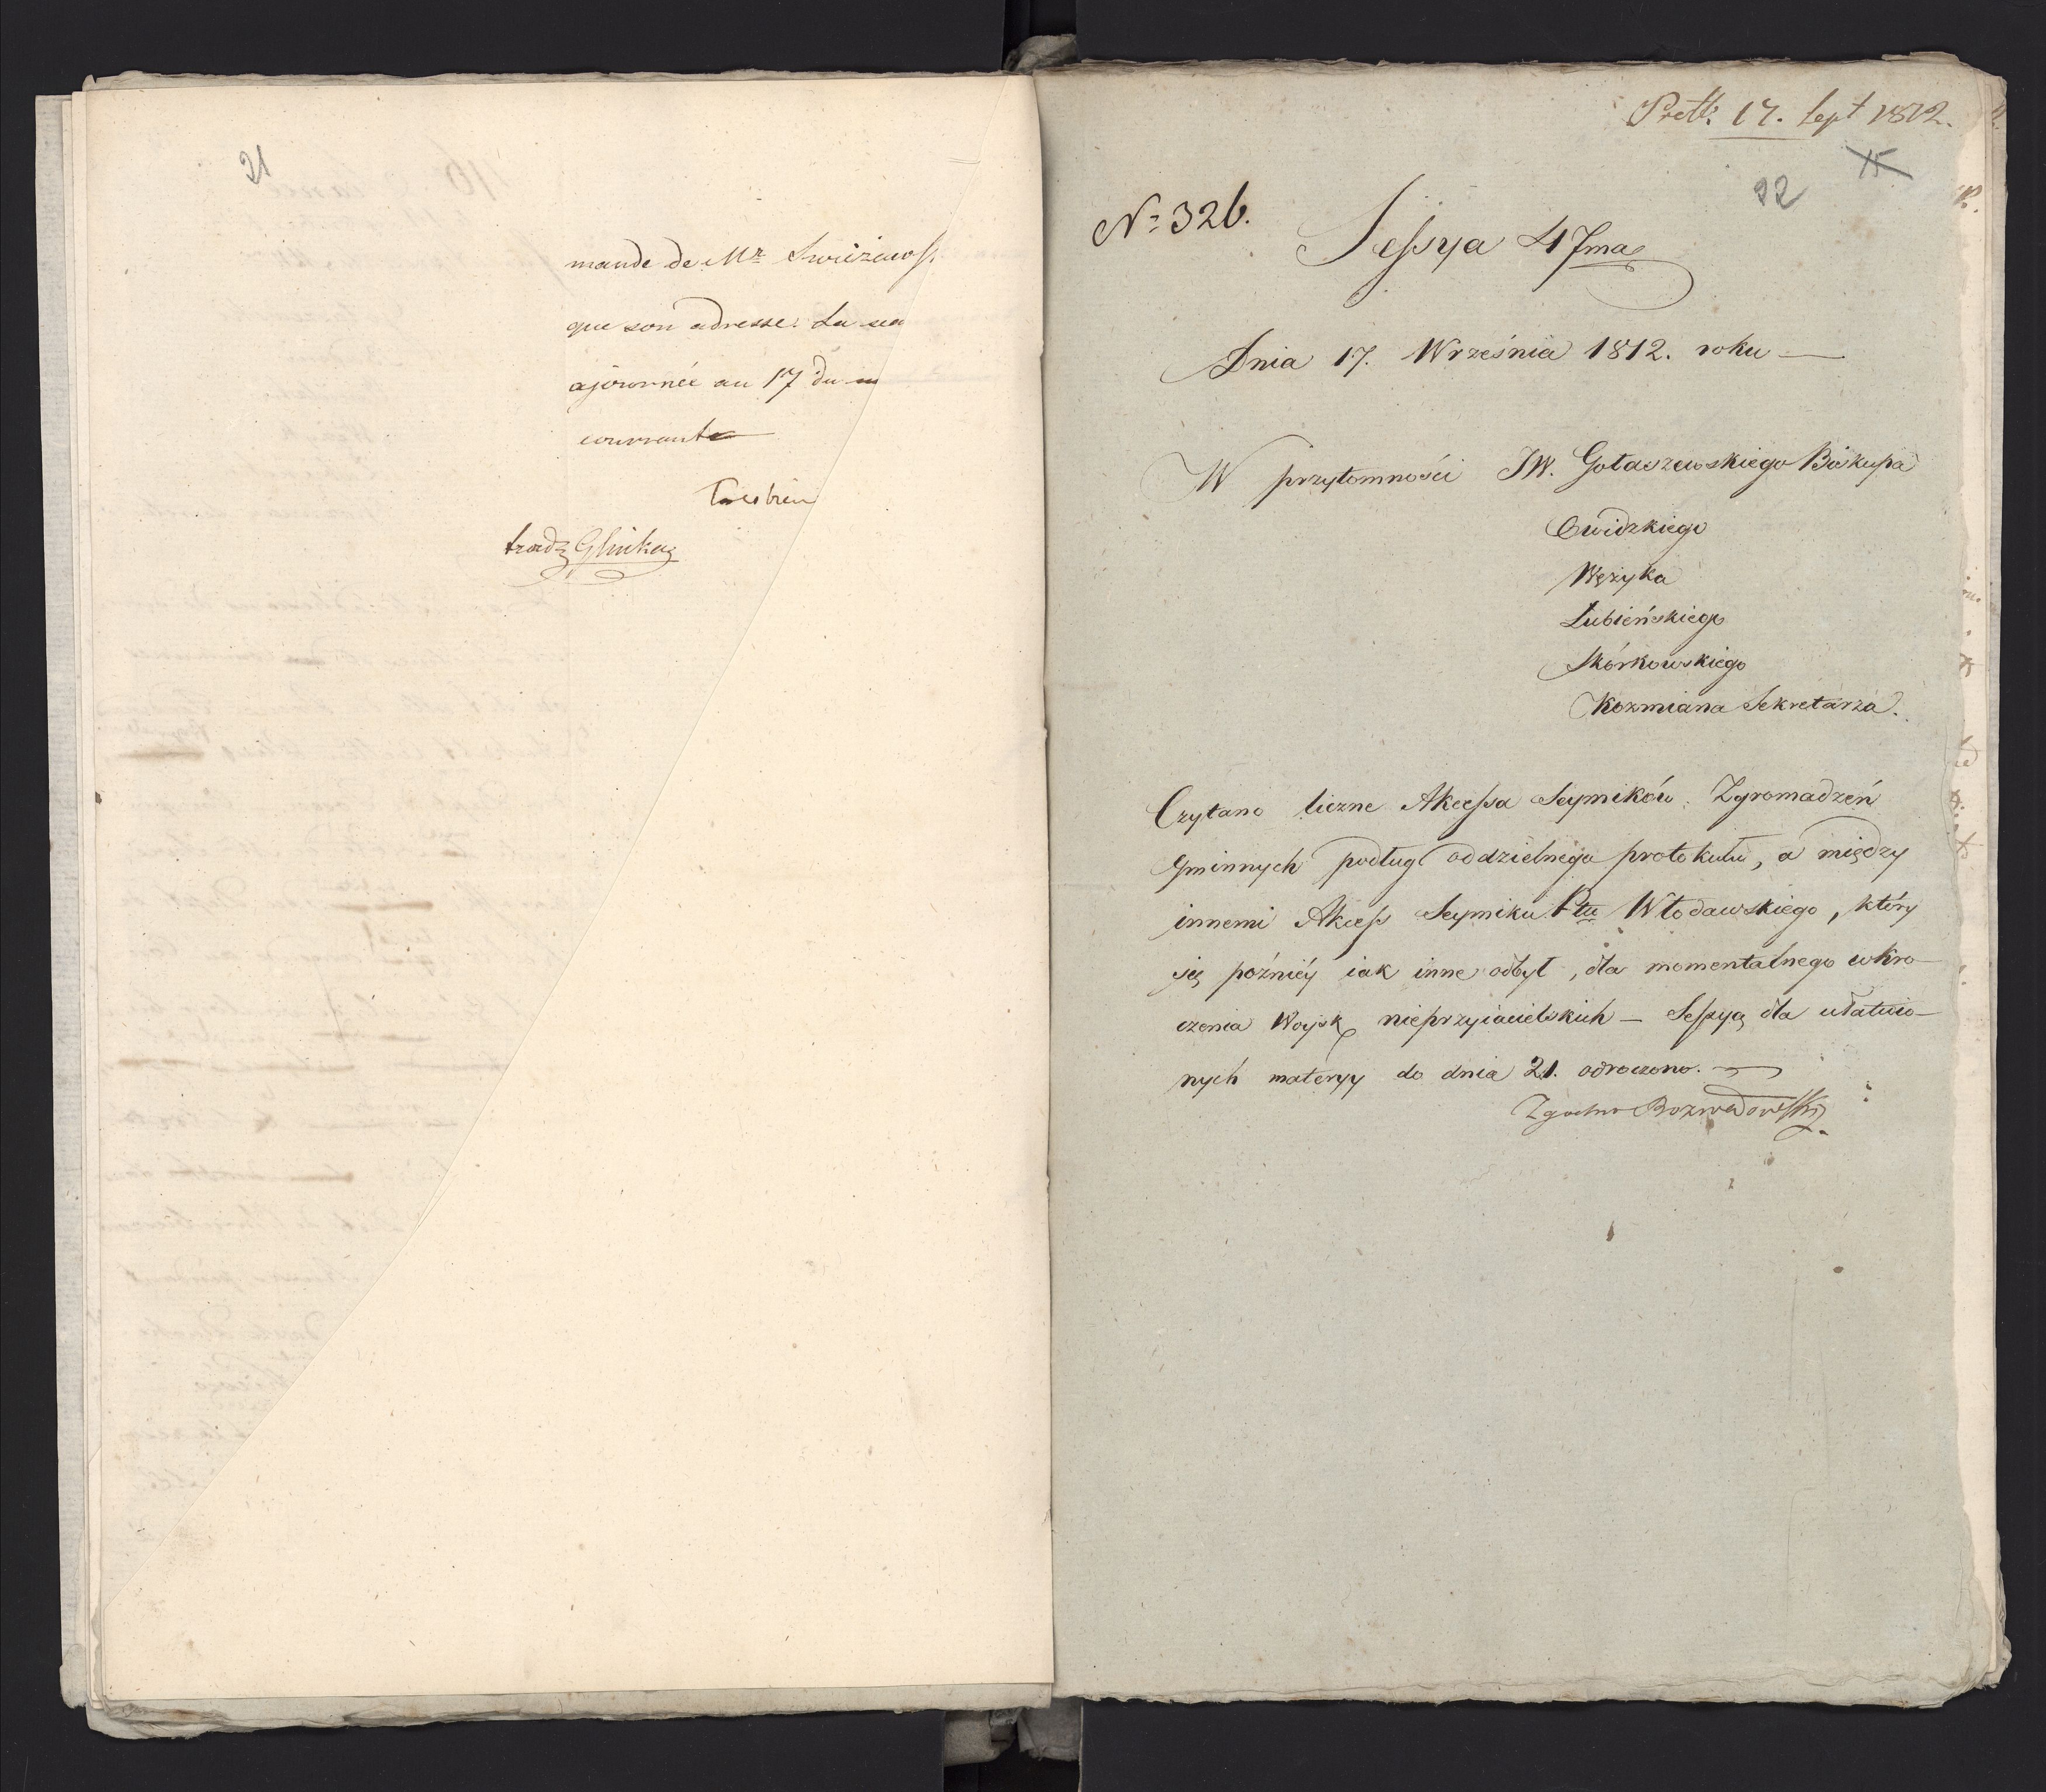 21
mande de Mr Swiżaws
que son adresse. La sea
ajournée au 17 du m
courrant
Trad: Glinka
Prett: 17. Sept 1812.
15
22
No 326.
Sessya 47ma
Dnia 17. Września 1812. roku —
W przytomności JW. Gołaszewskiego Biskupa
Owidzkiego
Wężyka
Łubieńskiego
Skórkowskiego
Kozmiana Sekretarza.
Czytano liczne Akcessa Seymików. Zgromadzeń
Gminnych podług oddzielnego protokułu, a między
innemi Akcess Seymiku Ptu Włodawskiego, który
się poźnièy iak inne odbył, dla momentalnego wkro-
czenia Woysk nieprzyiacielskich — Sessyą dla ułatwio-
nych materyy do dnia 21. odroczono. —
Zgodno Rozwadowski